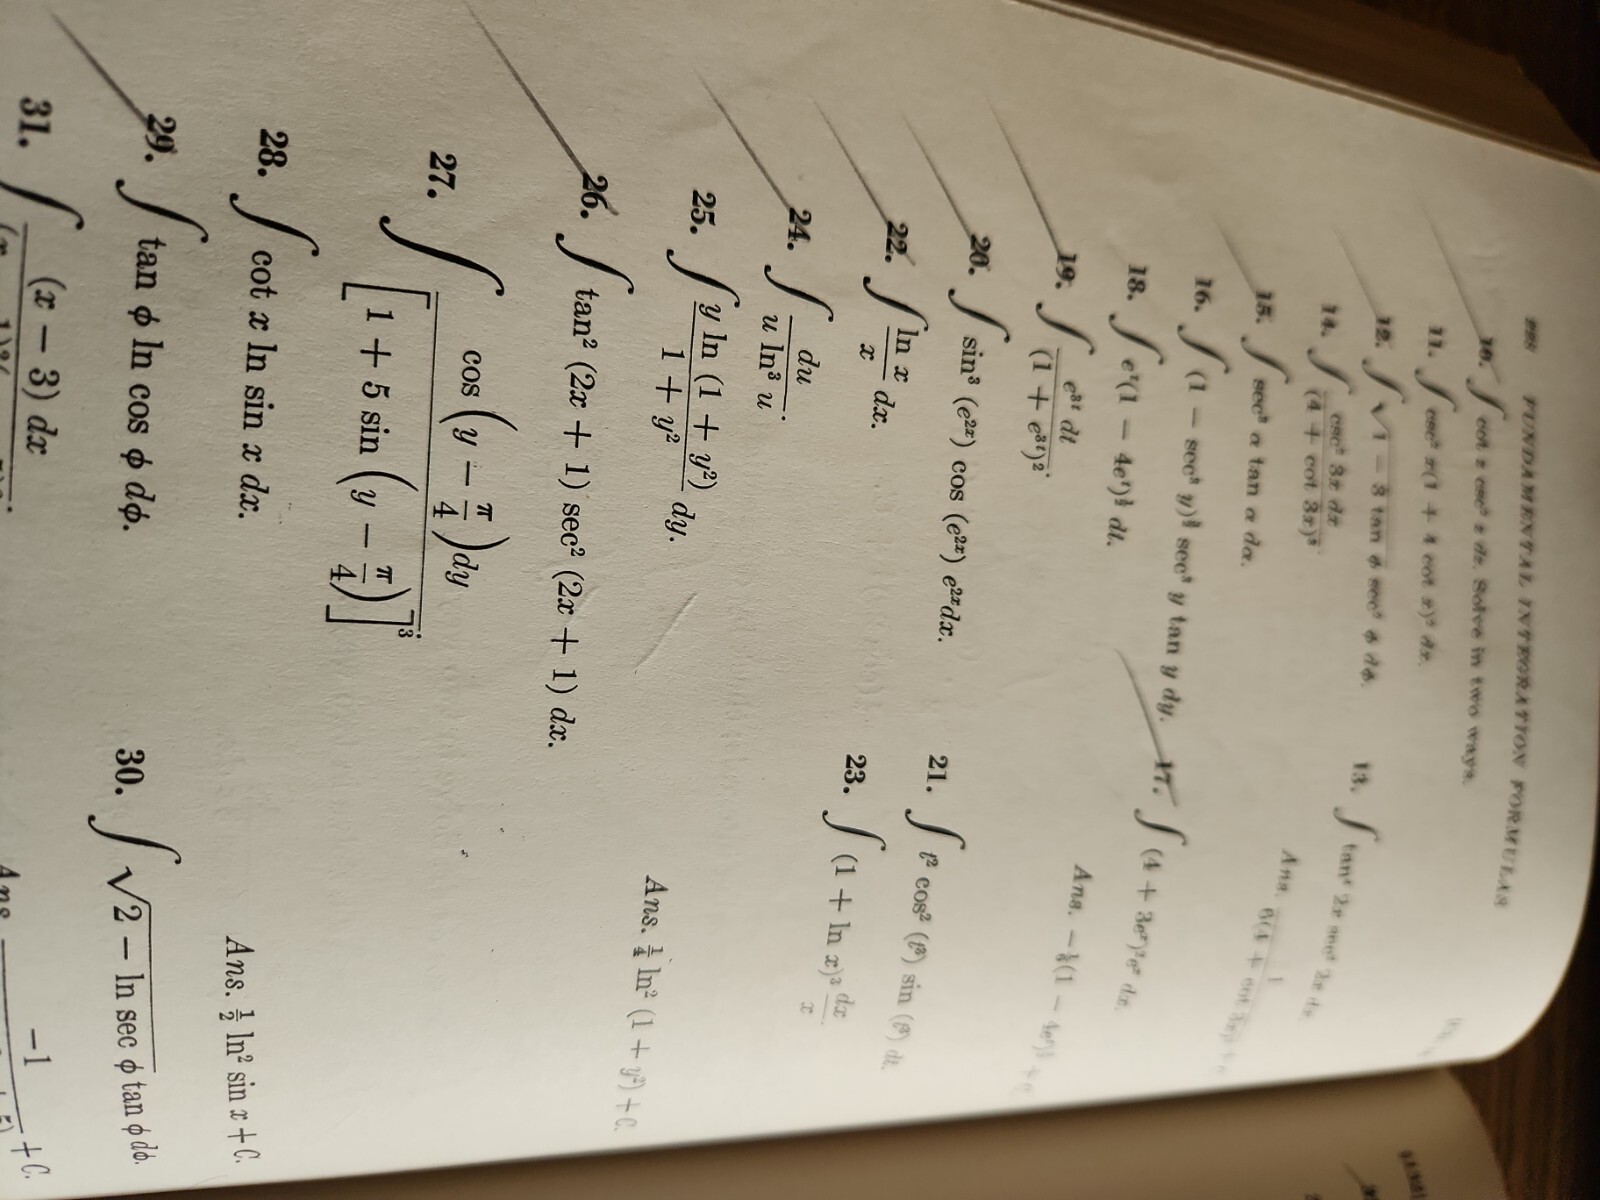 FUNDAMENTAL INTEGRATION FORMULAS
10. ∫ cot z csc² z dz. Solve in two ways.
11. ∫ csc² x(1 + 4 cot x)⁵ dx.
12. ∫ √1 − 3 tan ϕ sec² ϕ dϕ.
13. ∫ tan⁴ 2x sec² 2x dx
14. ∫ csc² 3x dx / (4 + cot 3x)³.
Ans. 1 / 6(4 + cot 3x)
15. ∫ sec³ α tan α dα.
16. ∫ (1 − sec³ y) sec³ y tan y dy.
17. ∫ (4 + 3eˣ)²eˣ dx.
18. ∫ eᵗ(1 − 4eᵗ) dt.
Ans. −⅙(1 − 4eᵗ)
19. ∫ e³ᵗ dt / (1 + e³ᵗ)².
20. ∫ sin³ (e²ˣ) cos (e²ˣ) e²ˣdx.
21. ∫ t² cos² (t³) sin (t³) dt.
22. ∫ ln x / x dx.
23. ∫ (1 + ln x)³ dx / x
24. ∫ du / u ln³ u.
25. ∫ y ln (1 + y²) / 1 + y² dy.
Ans. ¼ ln² (1 + y²) + C.
26. ∫ tan² (2x + 1) sec² (2x + 1) dx.
27. ∫ cos (y − π/4)dy / [1 + 5 sin (y − π/4)]³.
28. ∫ cot x ln sin x dx.
Ans. ½ ln² sin x + C.
29. ∫ tan ϕ ln cos ϕ dϕ.
30. ∫ √2 − ln sec ϕ tan ϕ dϕ.
31. ∫ (x − 3) dx
−1
+ C.